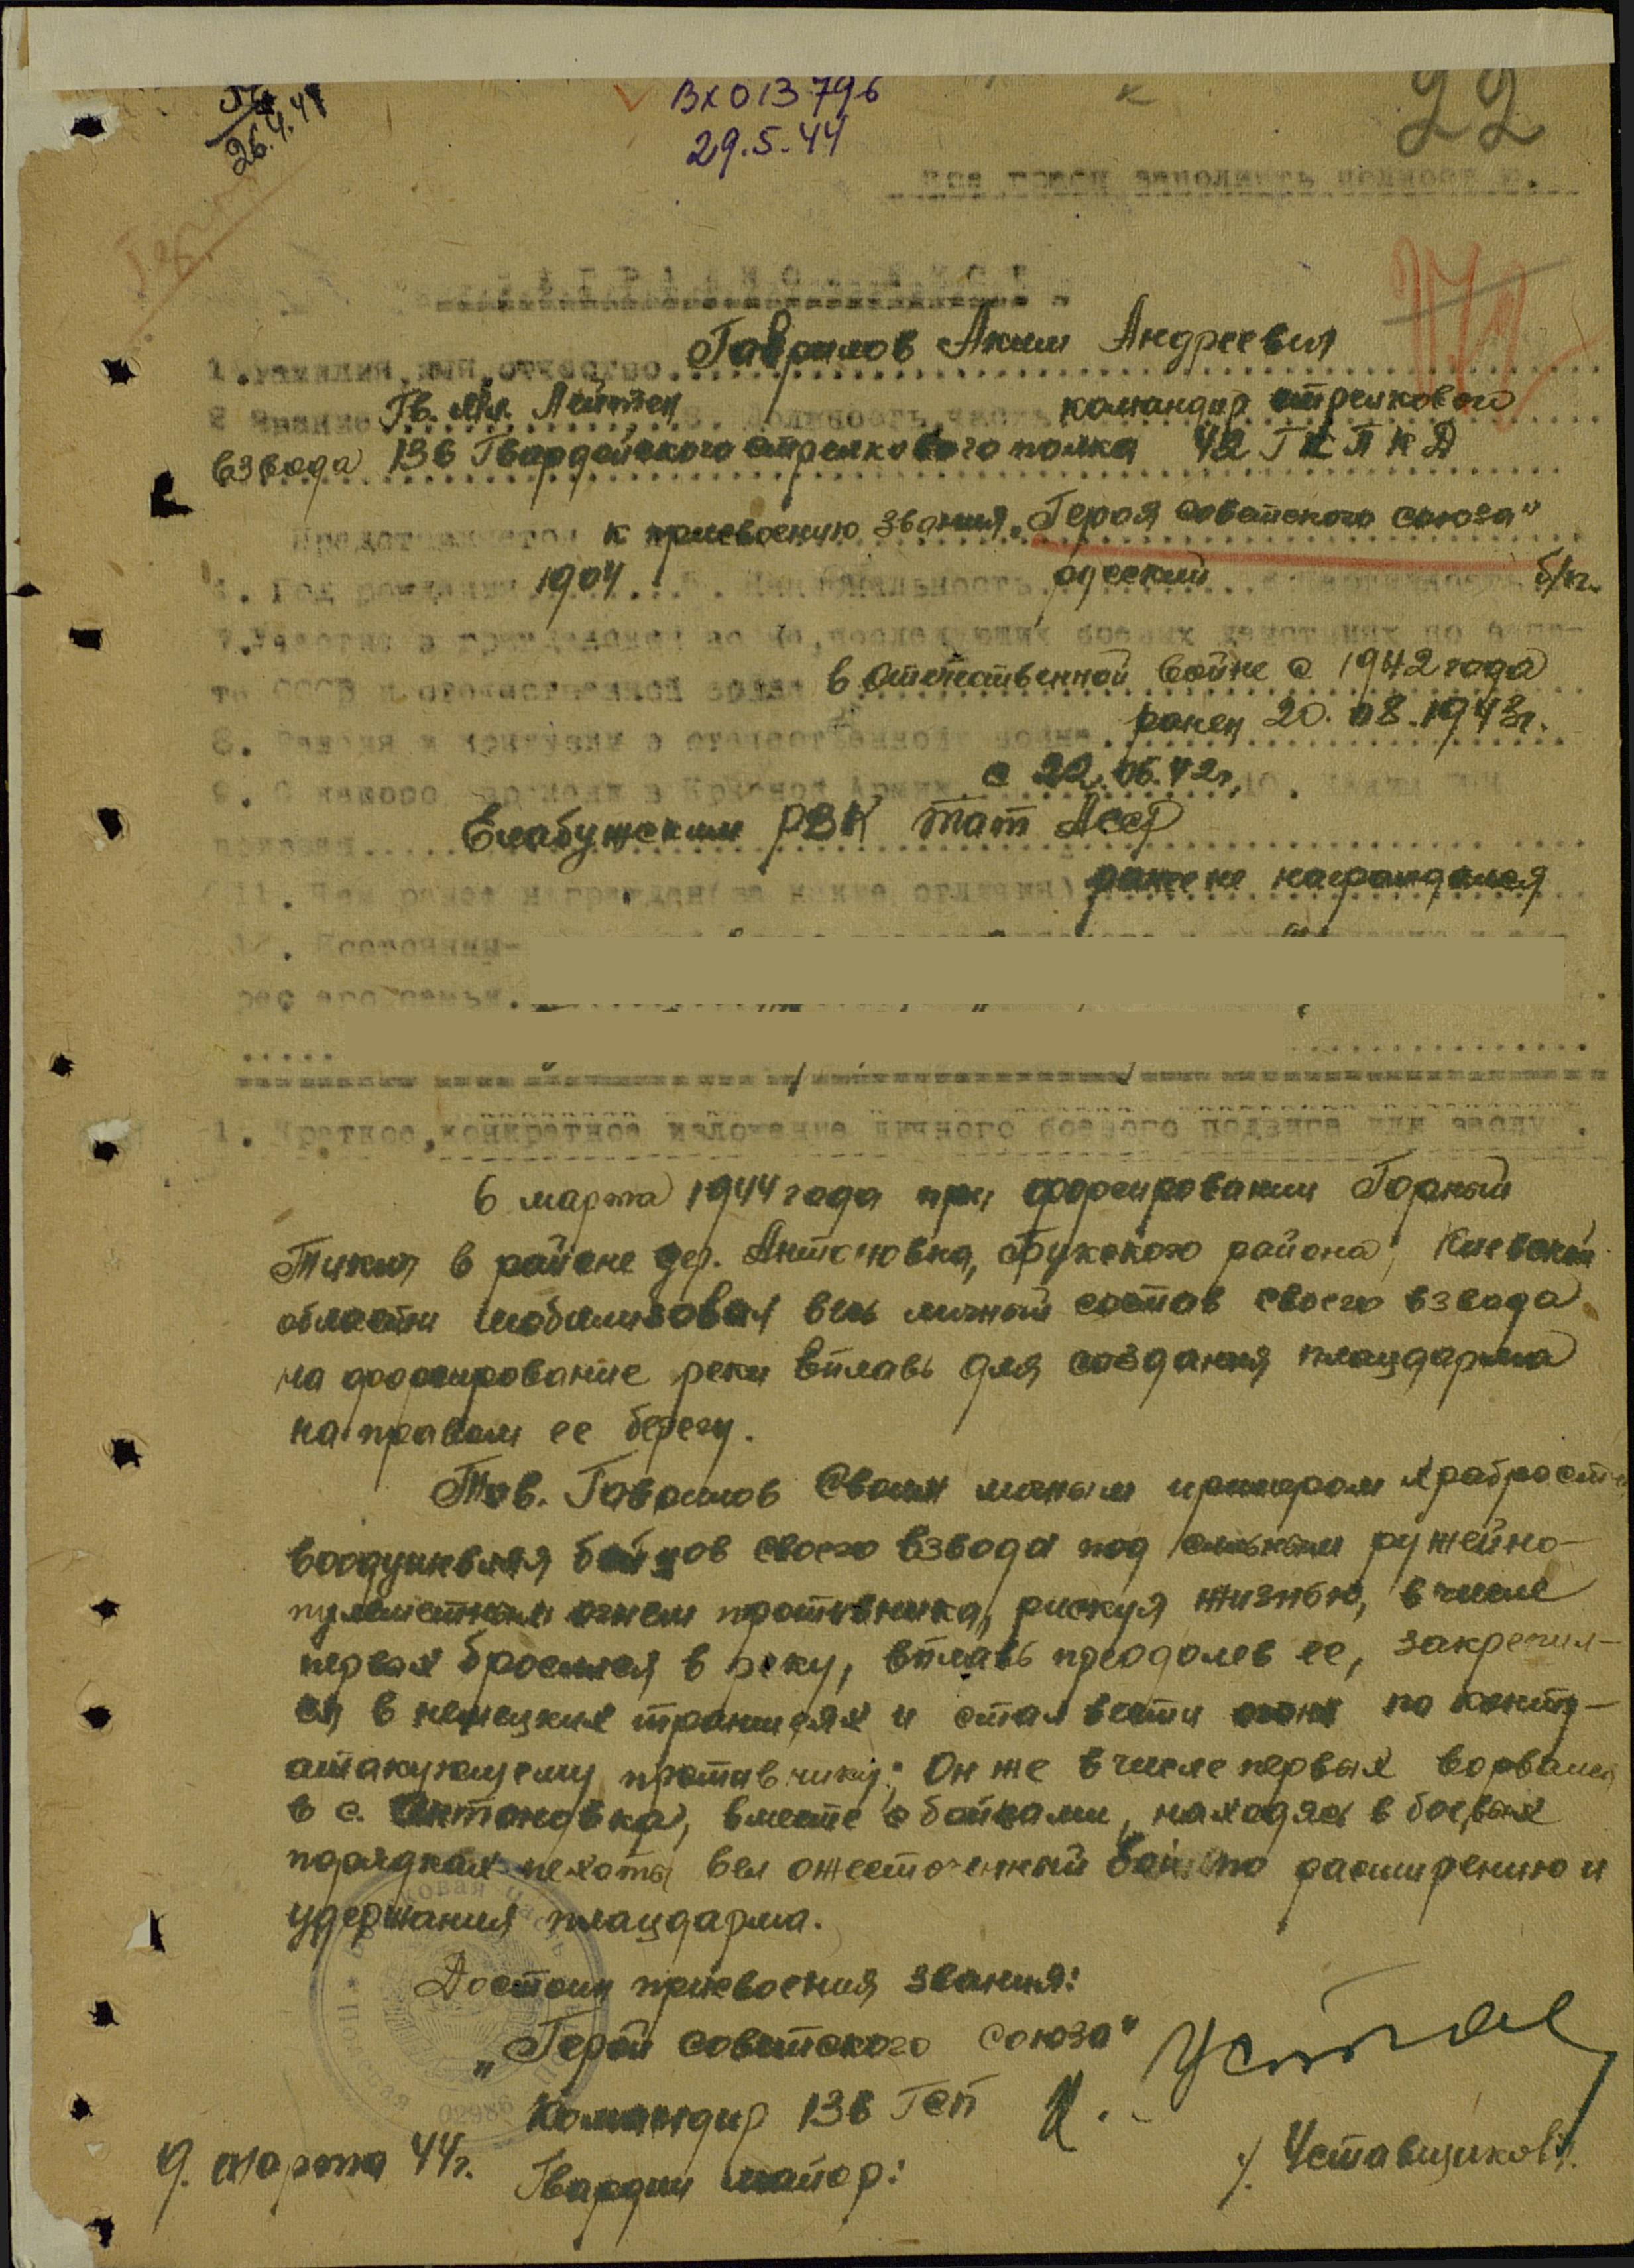 26.4.44
Вх 013796
29.5.44
22
все графы заполнять полностью.
НАГРАДНОЙ ЛИСТ
1. Фамилия, имя, отчество Гаврилов Аким Андреевич
2. Звание Гв. Мл. Лейтен 3. Должность, часть командир стрелкового
взвода 136 Гвардейского стрелкового полка 42 Г К П К Д
Представляется к присвоению звания „Героя советского союза"
4. Год рождения 1904 5. Национальность русский 6. Партийность б/п.
7. Участие в гражданской войне, последующих боевых действиях по защи-
те СССР и отечественной войне в Отечественной войне с 1942 года
8. Ранения и контузии в отечественной войне ранен 20.08.1943г.
9. С какого времени в Красной Армии с 22.06.42г. 10. Каким РВК
призван Елабужским РВК Тат Асср
11. Чем ранее награжден (за какие отличия) ранее не награждался
12. Постоянный
рес его семьи.
1. Краткое, конкретное изложение личного боевого подвига или заслуг.
6 марта 1944 года при форсировании Горный
Тикич в районе дер. Антоновка, Букского района, Киевской
области мобилизовал весь личный состав своего взвода
на форсирование реки вплавь для создания плацдарма
на правом ее берегу.
Тов. Гаврилов своим личным примером храбрости
воодушевляя бойцов своего взвода под сильным ружейно-
пулеметным огнем противника, рискуя жизнью, в числе
первых бросился в реку, вплавь преодолев ее, закрепил-
ся в немецких траншеях и стал вести огонь по контр-
атакующему противнику; Он же в числе первых ворвался
в с. Антоновка, вместе с бойцами, находясь в боевых
порядках пехоты вел ожесточенный бой по расширению и
удержания плацдарма.
Достоин присвоения звания:
„Герой советского союза"
Командир 136 Гсп
Гвардии майор:
/. Уставщиков /.
9. марта 44г.
02986